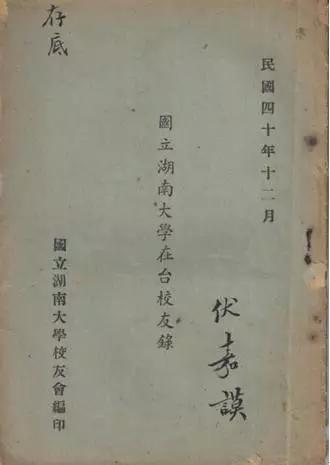 民國四十年十二月
國立湖南大學在台校友錄
伏嘉謨
國立湖南大學校友會編印
存底